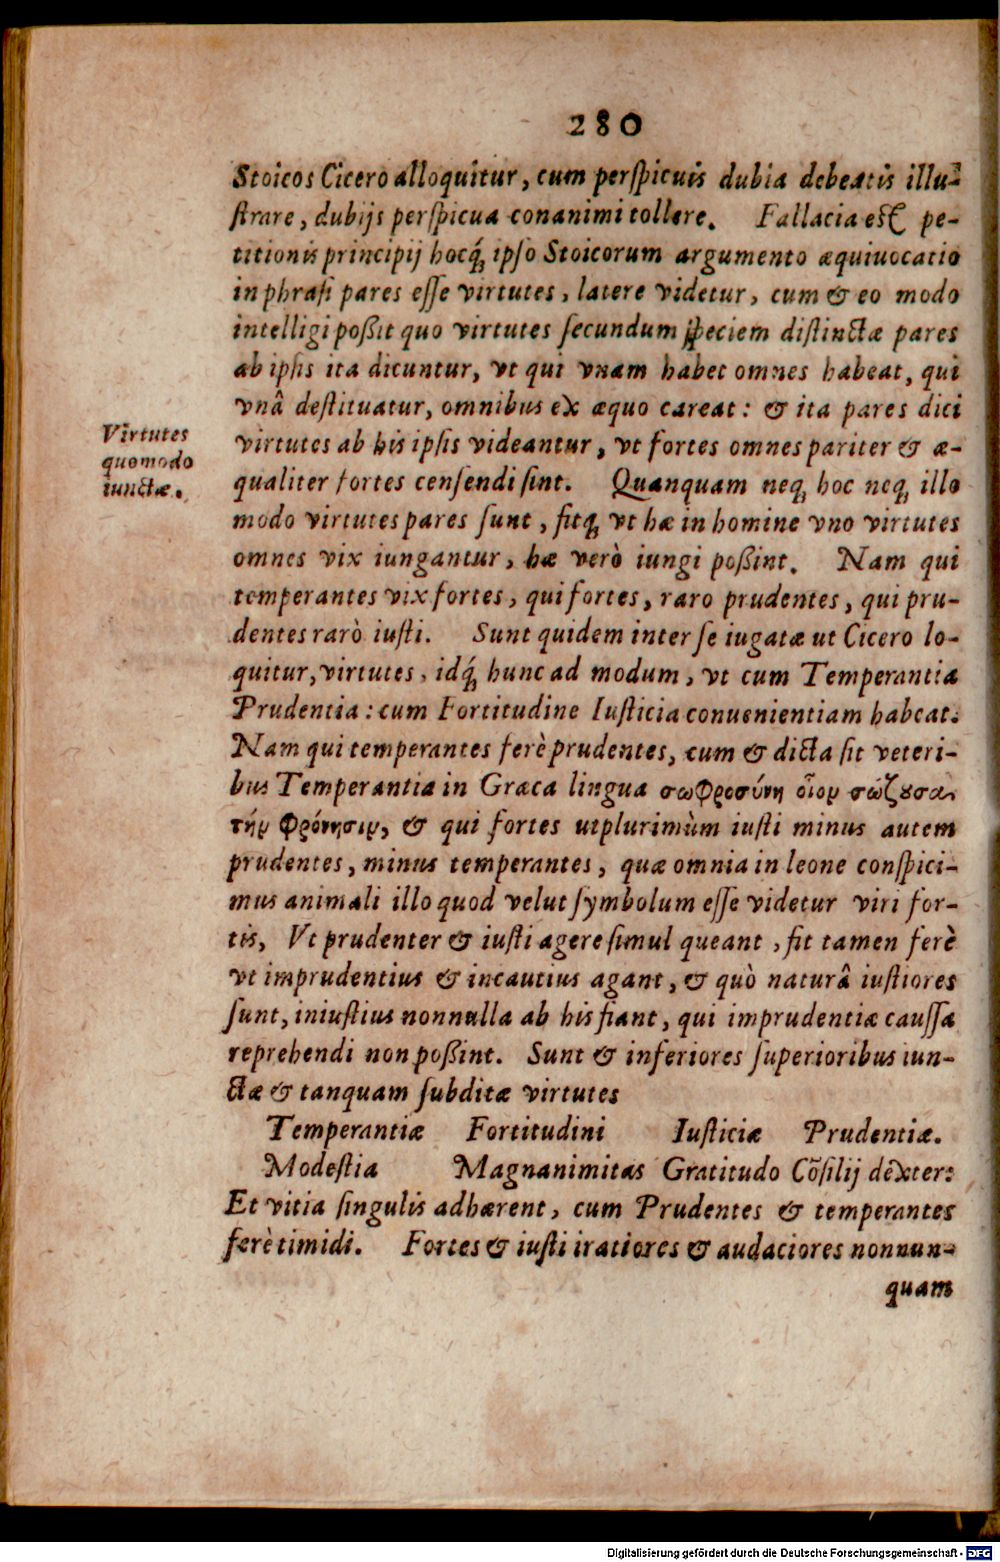 280
Stoicos Cicero alloquitur, cum perspicuis dubia debeatis illu-
strare, dubijs perspicua conanimi tollere. Fallacia est pe-
titionis principij hocq́; ipso Stoicorum argumento æquiuocatio
in phrasi pares esse virtutes, latere videtur, cum & eo modo
intelligi poßit quo virtutes secundum speciem distinctæ pares
ab ipsis ita dicuntur, vt qui vnam habet omnes habeat, qui
vnâ destituatur, omnibus ex æquo careat: & ita pares dici
virtutes ab his ipsis videantur, vt fortes omnes pariter & æ-
qualiter fortes censendi sint. Quanquam neq; hoc neq; illo
modo virtutes pares sunt, fitq; vt hæ in homine vno virtutes
omnes vix iungantur, hæ verò iungi poßint. Nam qui
temperantes vix fortes, qui fortes, raro prudentes, qui pru-
dentes rarò iusti. Sunt quidem inter se iugatæ ut Cicero lo-
quitur, virtutes, idq́; hunc ad modum, vt cum Temperantia
Prudentia: cum Fortitudine Iusticia conuenientiam habeat.
Nam qui temperantes ferè prudentes, cum & dicta sit veteri-
bus Temperantia in Græca lingua σωφροσύνη οἷον σώζουσαν
τήν φρόνησιν, & qui fortes utplurimùm iusti minus autem
prudentes, minus temperantes, quæ omnia in leone conspici-
mus animali illo quod velut symbolum esse videtur viri for-
tis, Vt prudenter & iusti agere simul queant, fit tamen ferè
vt imprudentius & incautius agant, & quò naturâ iustiores
sunt, iniustius nonnulla ab his fiant, qui imprudentiæ caussa
reprehendi non poßint. Sunt & inferiores superioribus iun-
ctæ & tanquam subditæ virtutes
Temperantiæ Fortitudini Iusticiæ Prudentiæ.
Modestia Magnanimitas Gratitudo Cõsilij dexter:
Et vitia singulis adhærent, cum Prudentes & temperantes
ferè timidi. Fortes & iusti iratiores & audaciores nonnun-
quam
Virtutes
quomodo
iunctæ.
Digitalisierung gefördert durch die Deutsche Forschungsgemeinschaft - DFG